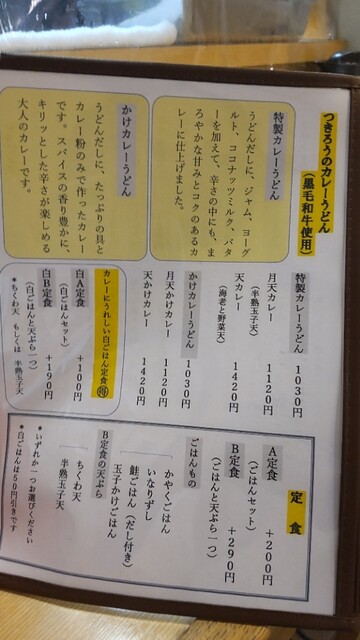 つきろうのカレーうどん
(黒毛和牛使用)
特製カレーうどん
うどんだしに、ジャム、ヨーグ
ルト、ココナッツミルク、バタ
ーを加えて、辛さの中にも、ま
ろやかな甘みとコクのあるカ
レーに仕上げました。
かけカレーうどん
うどんだしに、たっぷりの具と
カレー粉のみで作ったカレー
です。スパイスの香り豊かに、
キリッとした辛さが楽しめる
大人のカレーです。
特製カレーうどん 1030円
月天カレー 1120円
(半熟玉子天)
天カレー 1420円
(海老と野菜天)
かけカレーうどん 1030円
月天かけカレー 1120円
天かけカレー 1420円
カレーにうれしい白ごはん定食㊕
白A定食 +100円
(白ごはんセット)
白B定食 +190円
(白ごはんと天ぷら一つ)
*ちくわ天 もしくは 半熟玉子天
定食
A定食 +200円
(ごはんセット)
B定食 +290円
(ごはんと天ぷら一つ)
ごはんもの
かやくごはん
いなりずし
鮭ごはん(だし付き)
玉子かけごはん
B定食の天ぷら
ちくわ天
半熟玉子天
*いずれか一つお選びください
*白ごはんは50円引きです